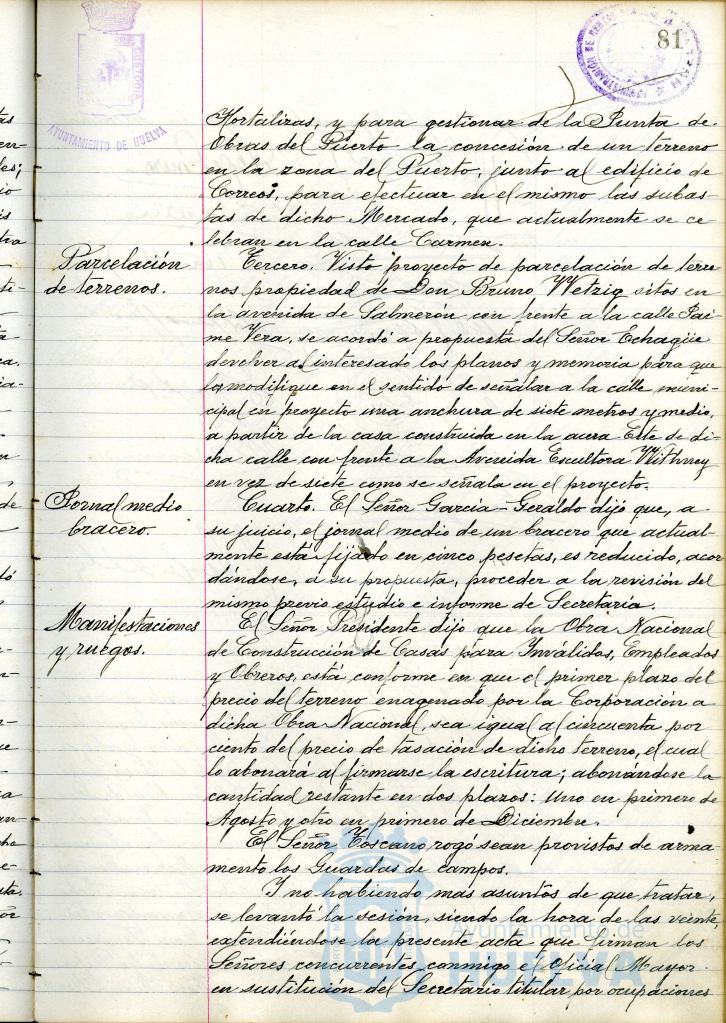 81
AYUNTAMIENTO DE HUELVA
Hortalizas, y para gestionar de la Junta de
Obras del Puerto la concesión de un terreno
en la zona del Puerto, junto al edificio de
Correos, para efectuar en el mismo las subas-
tas de dicho Mercado, que actualmente se ce
lebran en la calle Carmen.
Parcelación
de terrenos.
Tercero. Visto proyecto de parcelación de terre
nos propiedad de Don Bruno Wetzig sitos en
la avenida de Salmerón con frente a la calle Jai-
me Vera, se acordó a propuesta del Señor Echagüe
devolver al interesado los planos y memoria para que
los modifique en el sentido de señalar a la calle muni-
cipal en proyecto una anchura de siete metros y medio,
a partir de la casa construida en la acera Este de di-
cha calle con frente a la Avenida Escultora Withney
en vez de siete como se señala en el proyecto.
Jornal medio
bracero.
Cuarto. El Señor García-Geraldo dijo que, a
su juicio, el jornal medio de un bracero que actual-
mente está fijado en cinco pesetas, es reducido, acor
dándose, a su propuesta, proceder a la revisión del
mismo previo estudio e informe de Secretaría.
Manifestaciones
y ruegos.
El Señor Presidente dijo que la Obra Nacional
de Construcción de Casas para Inválidos, Empleados
y Obreros, está conforme en que el primer plazo del
precio del terreno enagenado por la Corporación a
dicha Obra Nacional, sea igual al cincuenta por
ciento del precio de tasación de dicho terreno, el cual
lo abonará al firmarse la escritura; abonándose la
cantidad restante en dos plazos: uno en primero de
Agosto y otro en primero de Diciembre.
El Señor Toscano, rogó sean provistos de arma-
mento los Guardas de campos.
Y no habiendo mas asuntos de que tratar,
se levantó la sesión, siendo la hora de las veinte,
extendiéndose la presente acta que firman los
Señores concurrentes, conmigo el Oficial Mayor
en sustitución del Secretario titular, por ocupaciones
Ayuntamiento de
HUELVA